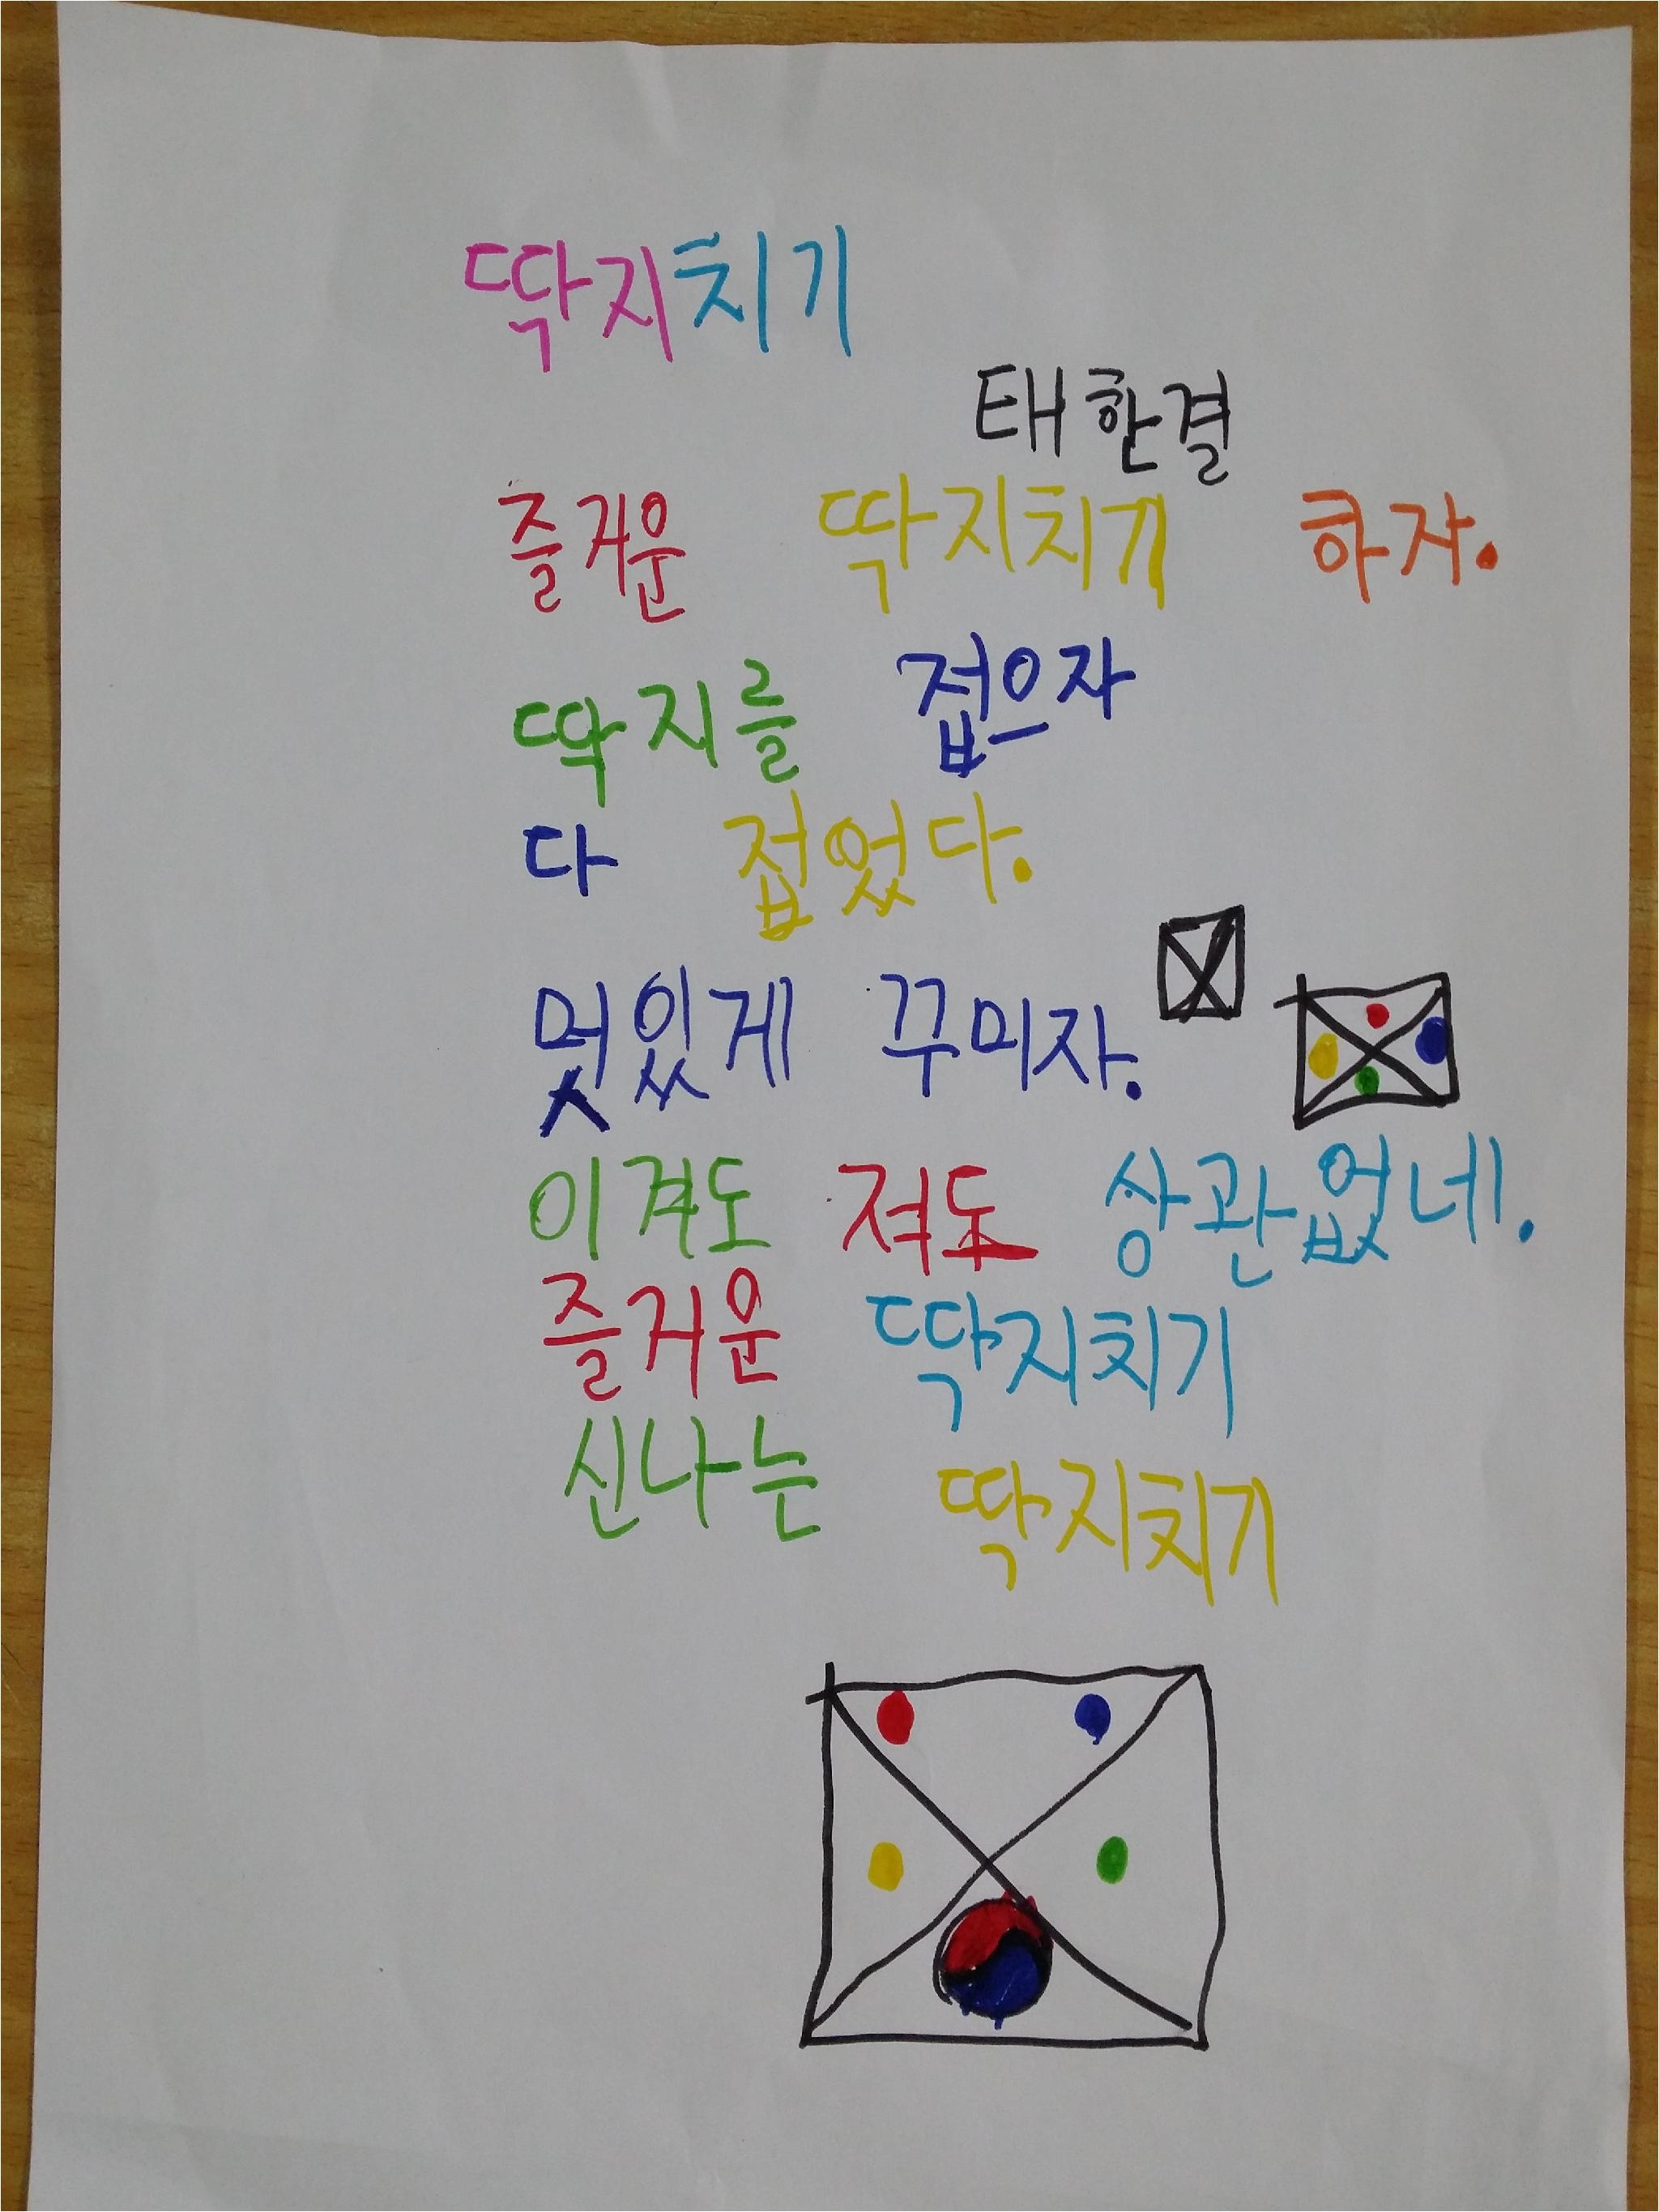 딱지치기
태한결
즐거운 딱지치기 하자.
딱지를 접으자
다 접었다.
멋있게 꾸미자.
이겨도 져도 상관없네.
즐거운 딱지치기
신나는 딱지치기